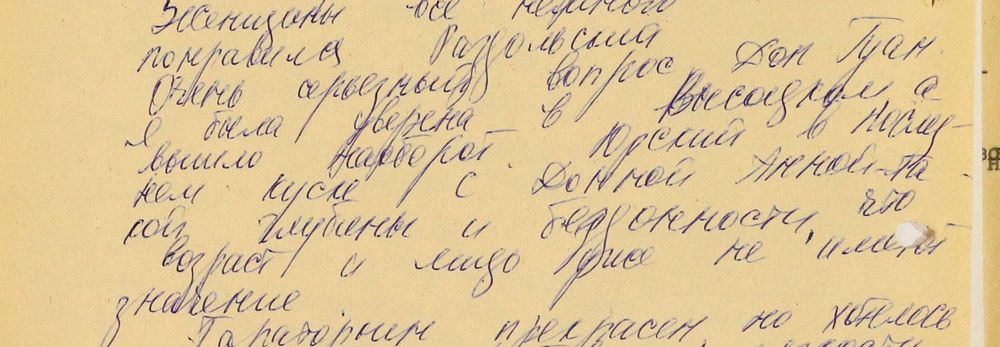 Женщины все немного
понравился Раздольский
Очень серьезный вопрос Дон Гуан.
я была уверена в Высоцком а
вышло наоборот. Юрский в послед-
нем куске с Донной Анной-та
кой глубины и бездонности, что
возраст и лицо уже не имеют
значение
Тараторкин прекрасен но хотелось